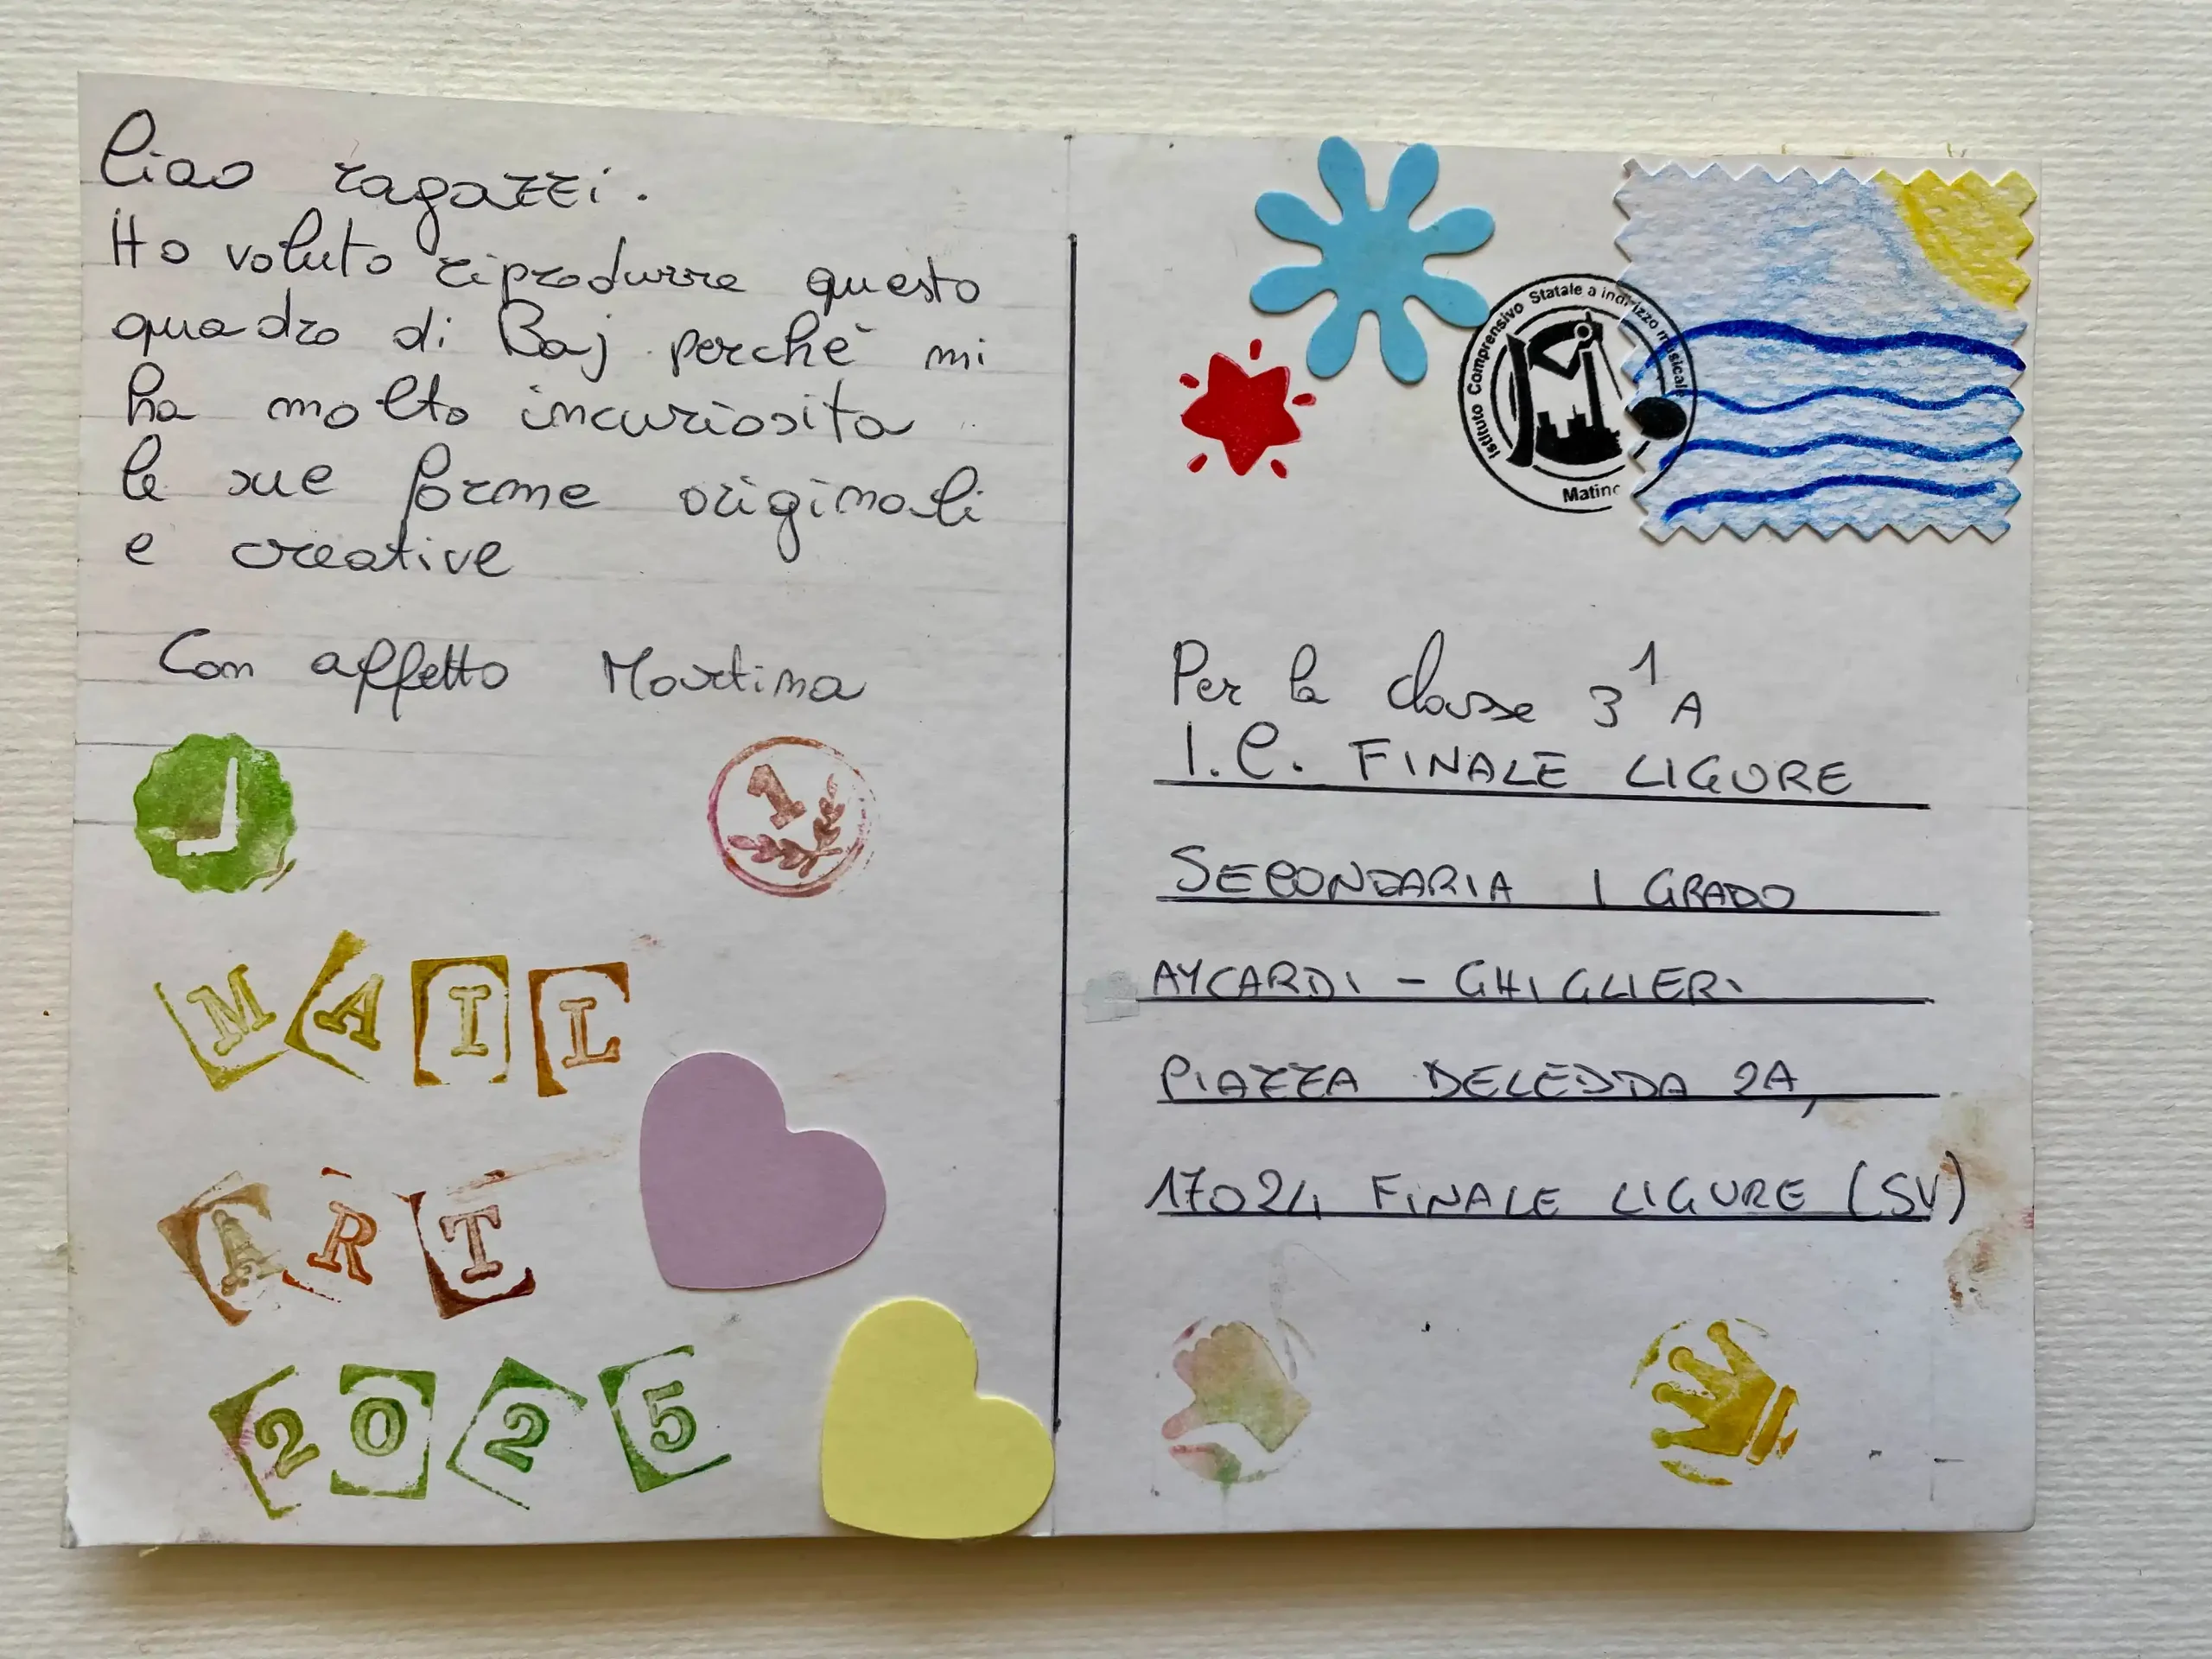 Ciao ragazzi.
Ho voluto riprodurre questo
quadro di Baj perchè mi
ha molto incuriosita
le sue forme originali
e creative
Con affetto Martina
1
MAIL
ART
2025
Istituto Comprensivo Statale a indirizzo musicale
Matino
Per la classe 3^1 A
I.C. FINALE LIGURE
SECONDARIA I GRADO
AYCARDI - GHIGLIERI
PIAZZA DELEDDA 2A,
17024 FINALE LIGURE (SV)